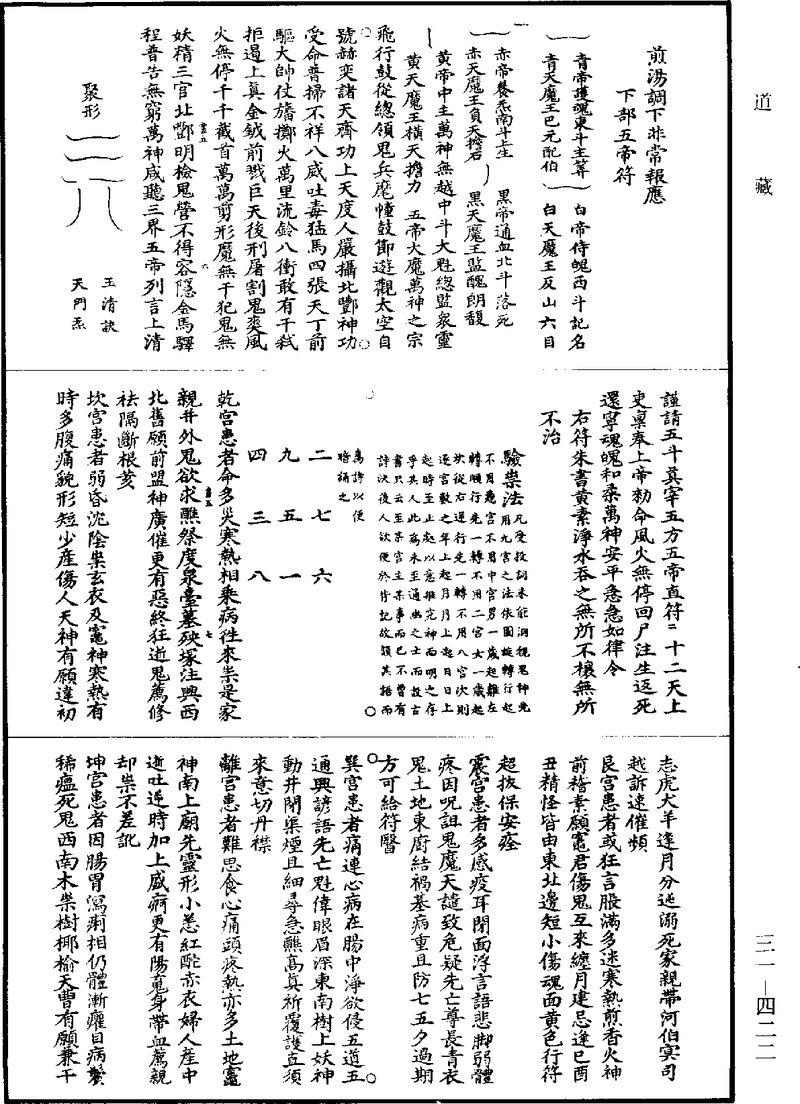 道藏
煎湯調下非常報應
下部五帝符
青帝護魂東斗主筭
青天魔王巴元配伯
白帝侍魄西斗記名
白天魔王反山六目
赤帝養炁南斗上生
赤天魔王負天擔石
黑帝通血北斗落死
黑天魔王監醜朗馥
黃帝中主萬神無越中斗大魁總監衆靈
黃天魔王橫天擔力 五帝大魔萬神之宗
飛行鼓從總領鬼兵麾幢鼓節遊觀太空自
號赫奕諸天齊功上天度人嚴攝北酆神功
受命普掃不祥八威吐毒猛馬四張天丁前
驅大帥仗旛擲火萬里流鈴八衝敢有干試
拒遏上真金鉞前戮巨天後刑屠割鬼爽風
火無停千千截首萬萬剪形魔無干犯鬼無
妖精三官北酆明檢鬼營不得容隱金馬驛
程普告無窮萬神咸聽三界五帝列言上清
聚形
玉清訣
天門炁
謹請五斗真宰五方五帝直符二十二天上
吏稟奉上帝勑命風火無停回尸注生返死
還寧魂魄和柔萬神安平急急如律令
右符朱書黃素淨水吞之無所不禳無所
不治
驗祟法
凡受投詞未能洞視鬼神先
用九宮之法依圖旋轉行起
不用中宮男一歲起離左
轉順行先一轉不用二宮女一歲起
坎從右逆行先一轉不用八宮次則
逐宮數之年上起月月上起日日上
起時至止起以意推究神而明之存
乎其人此為未至通幽之士而設言
書只云至某宮主某事而已不曾有
詩決後人欲便於背記故類其語而
為詩以便
暗誦之
二七六
九五一
四三八
乾宮患者命多災寒熱相乘病徃來祟是家
親并外鬼欲求醮祭度泉臺墓殃塚注興西
北舊願前盟神廣催更有惡終狂逝鬼薦修
祛隔斷根荄
坎宮患者弱昏沈陰祟玄衣及竈神寒熱有
時多腹痛貌形短少產傷人天神有願違初
志虎犬羊逢月分迍溺死家親帶河伯冥司
越訴速催頻
艮宮患者或狂言脹滿多迷寒熱煎香火神
前稽素願竈君傷鬼互來纏月建忌逢巳酉
丑精怪皆由東北邊短小傷魂面黃色行符
超拔保安痊
震宮患者多感疫耳閉面浮言語悲脚弱體
疼因呪詛鬼魔天譴致危疑先亡尊長青衣
鬼土地東廚結禍基病重且防七五夕過期
方可給符醫
巽宮患者痛連心病在腸中淨欲侵五道五
通興諺語先亡魁偉眼眉深東南樹上妖神
動井閉渠煙且細尋急醮高真祈覆護直須
來意切丹襟
離宮患者難思食心痛頭疼熱亦多土地竈
神南上廟先靈形小恙紅酡赤衣婦人產中
逝吐逆時加上盛痾更有陽竟身帶血薦親
却祟不差訛
坤宮患者因腸胃瀉痢相仍體漸癯目病鬢
稀瘟死鬼西南木祟樹椰榆天曹有願兼干
三一—四二二